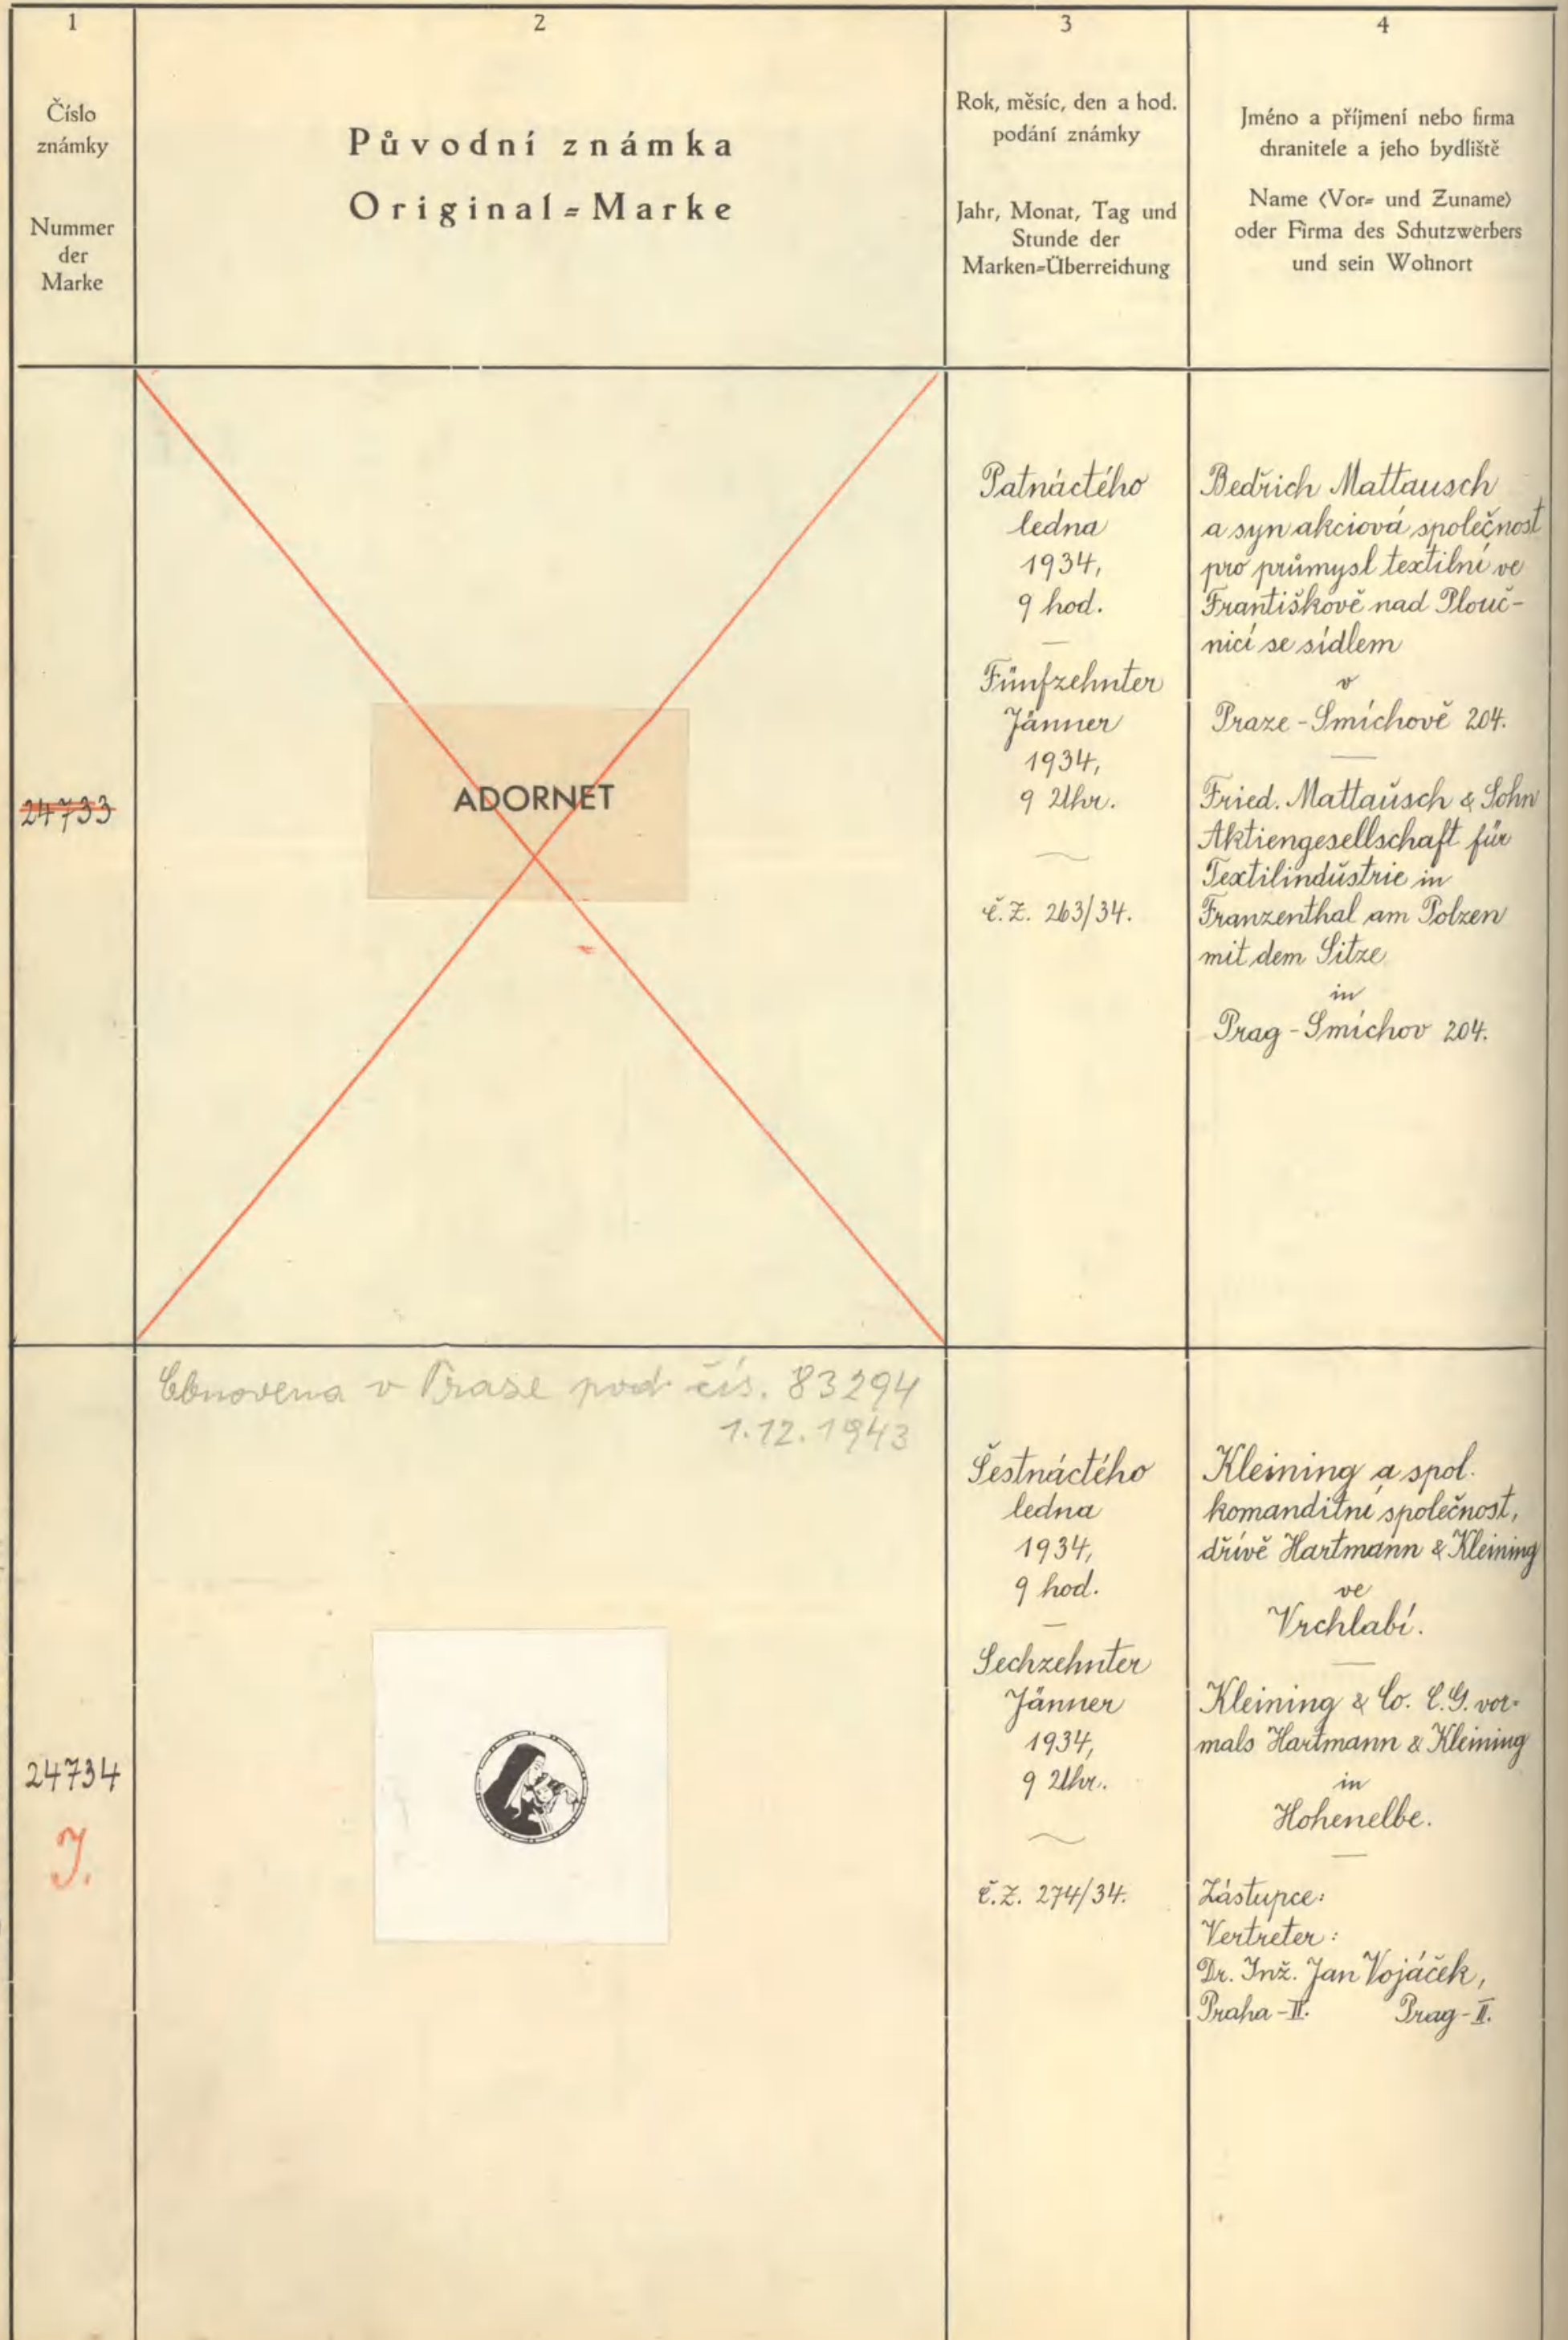 1
Číslo
známky
Nummer
der
Marke
2
Původní známka
Original=Marke
3
Rok, měsíc, den a hod.
podání známky
Jahr, Monat, Tag und
Stunde der
Marken=Überreichung
4
Jméno a příjmení nebo firma
chranitele a jeho bydliště
Name (Vor= und Zuname)
oder Firma des Schutzwerbers
und sein Wohnort
24733
ADORNET
Patnáctého
ledna
1934,
9 hod.
Fünfzehnter
Jänner
1934,
9 Uhr.
č.Z. 263/34.
Bedřich Mattausch
a syn akciová společnost
pro průmysl textilní ve
Františkově nad Plouč-
nicí se sídlem
v
Praze-Smíchově 204.
Fried. Mattausch & Sohn
Aktiengesellschaft für
Textilindustrie in
Franzenthal am Polzen
mit dem Sitze
in
Prag-Smíchov 204.
24734
J.
Obnovena v Praze pod čís. 83294
1.12.1943
Šestnáctého
ledna
1934,
9 hod.
Sechzehnter
Jänner
1934,
9 Uhr.
č.Z. 274/34.
Kleining a spol.
komanditní společnost,
dřívě Hartmann & Kleining
ve
Vrchlabí.
Kleining & Co. C.G. vor-
mals Hartmann & Kleining
in
Hohenelbe.
Zástupce:
Vertreter:
Dr. Inž. Jan Vojáček,
Praha-II. Prag-II.